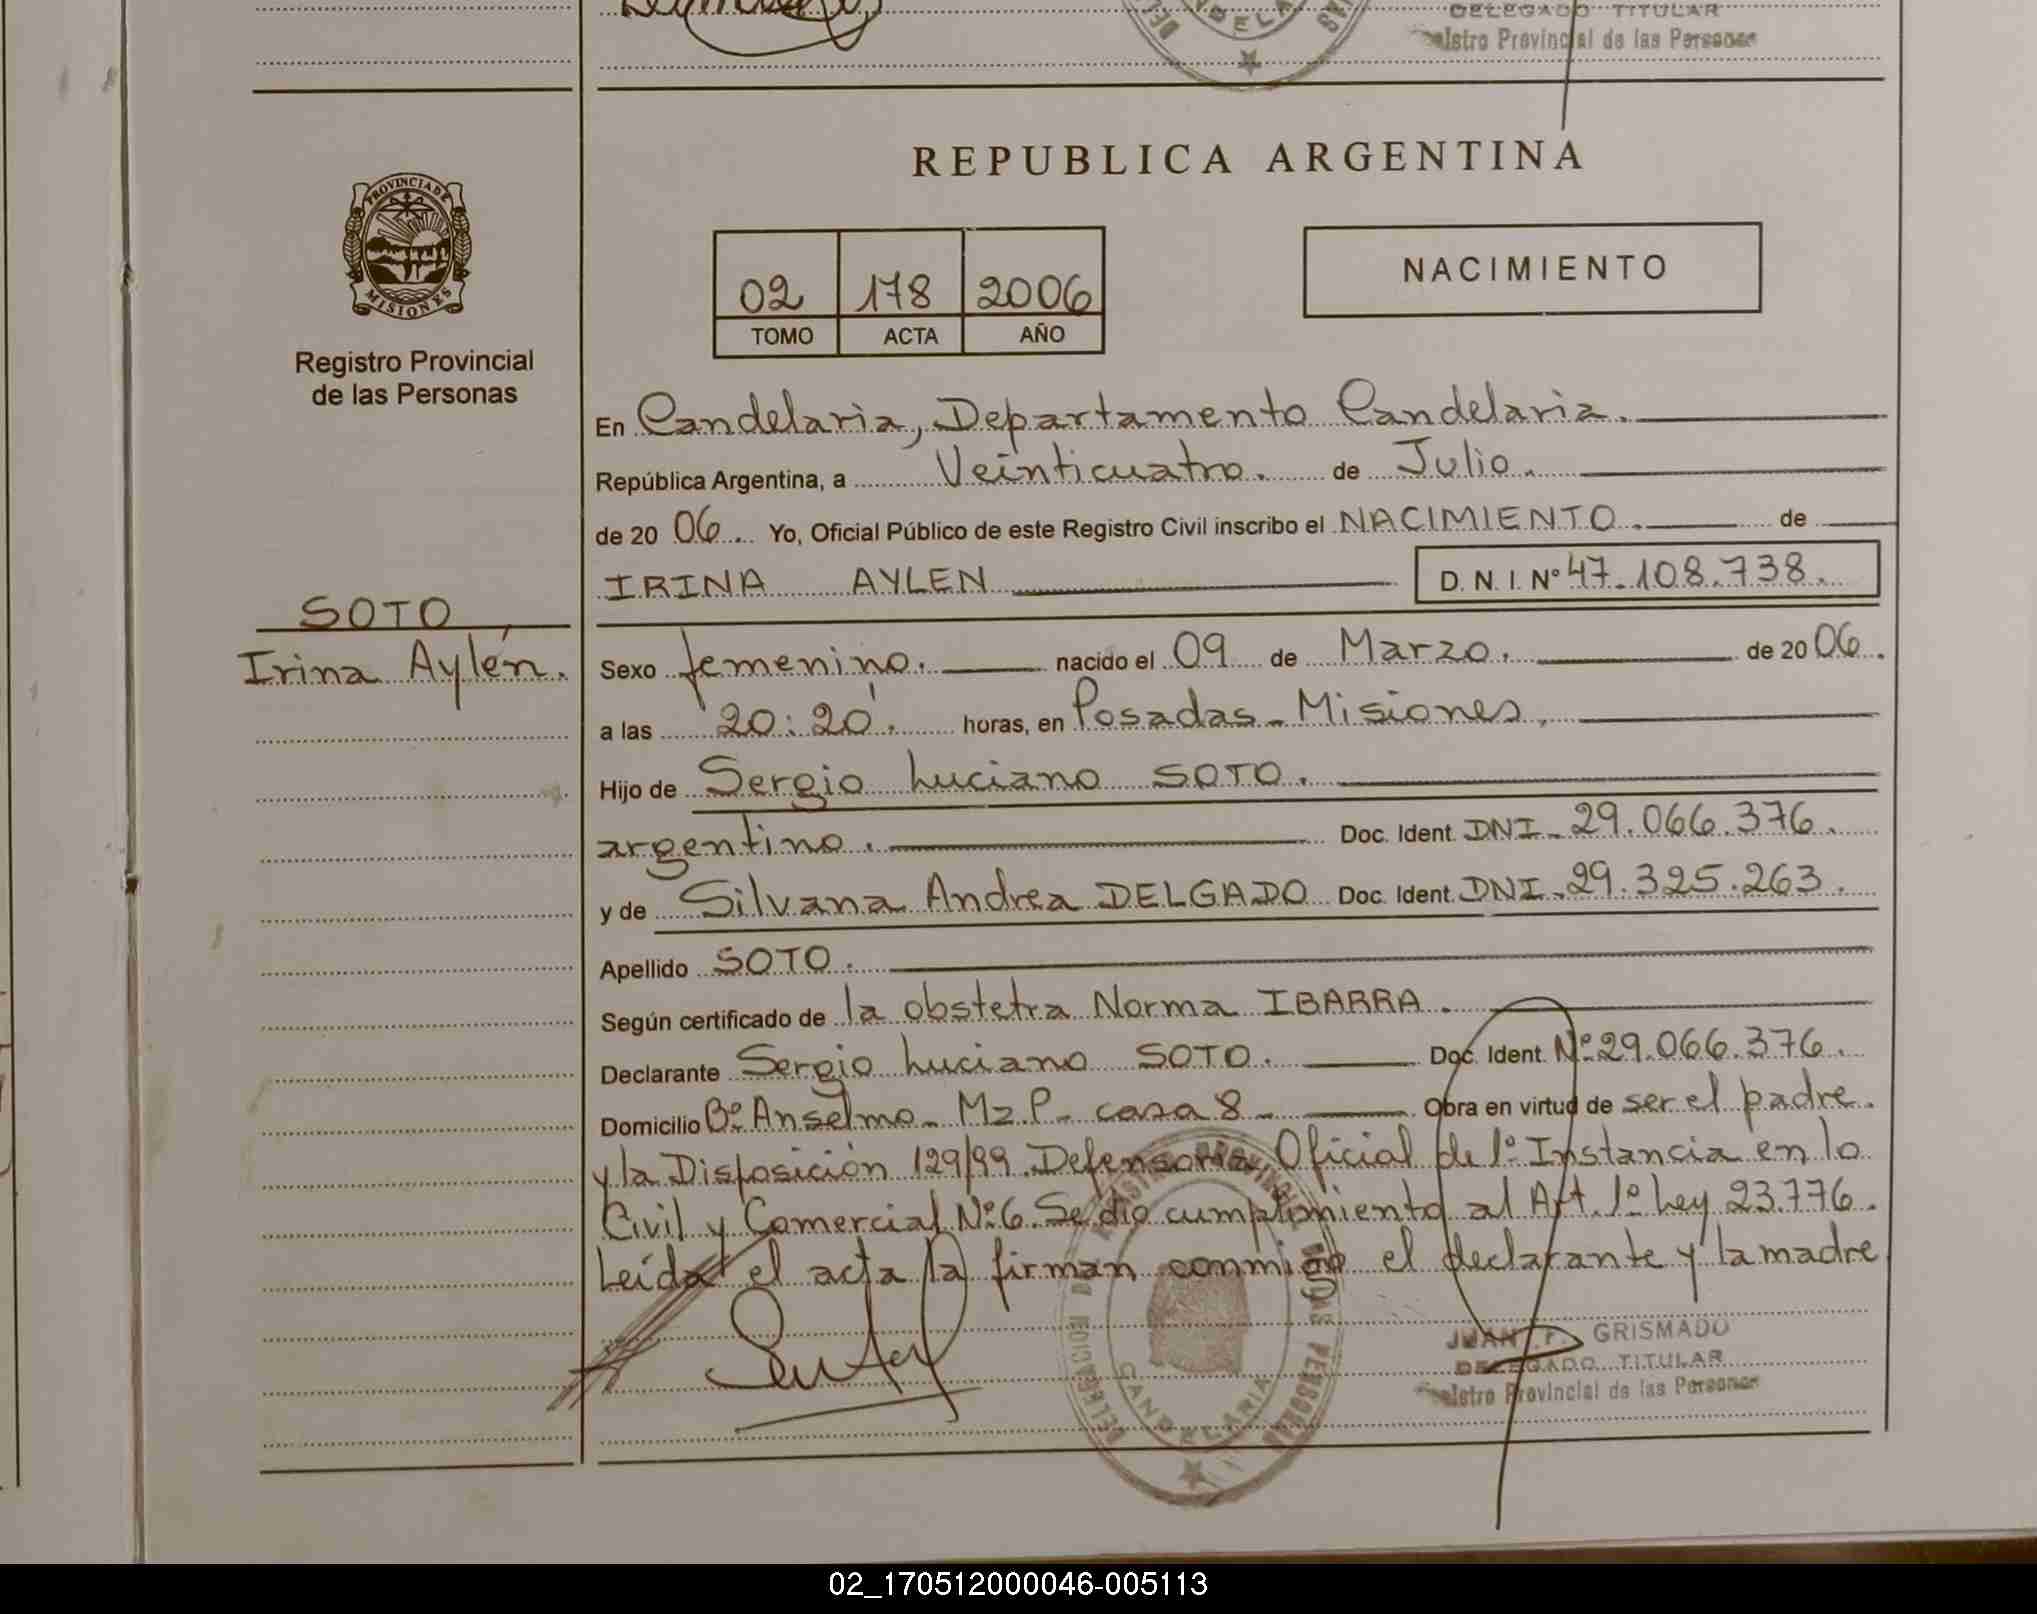 DELEGADO TITULAR
Registro Provincial de las Personas
REPUBLICA ARGENTINA
PROVINCIA DE
MISIONES
Registro Provincial
de las Personas
NACIMIENTO
02 178 2006
TOMO ACTA AÑO
En Candelaria, Departamento Candelaria.
República Argentina, a Veinticuatro. de Julio.
de 20 06. Yo, Oficial Público de este Registro Civil inscribo el NACIMIENTO. de
IRINA AYLEN D. N. I. Nº 47.108.738.
SOTO
Irina Aylén.
Sexo femenino. nacido el 09 de Marzo. de 20 06.
a las 20:20'. horas, en Posadas - Misiones.
Hijo de Sergio Luciano SOTO.
argentino. Doc. Ident. DNI - 29.066.376.
y de Silvana Andrea DELGADO Doc. Ident. DNI - 29.325.263.
Apellido SOTO.
Según certificado de la obstetra Norma IBARRA.
Declarante Sergio Luciano SOTO. Doc. Ident. Nº 29.066.376.
Domicilio Bº Anselmo - Mz. P - casa 8 - Obra en virtud de ser el padre.
y la Disposición 129/99. Defensoría Oficial de 1º Instancia en lo
Civil y Comercial Nº 6. Se dio cumplimiento al Art. 1º Ley 23.776.
Leída el acta la firman conmigo el declarante y la madre
JUAN F. GRISMADO
DELEGADO TITULAR
Registro Provincial de las Personas
CANDELARIA
02_170512000046-005113